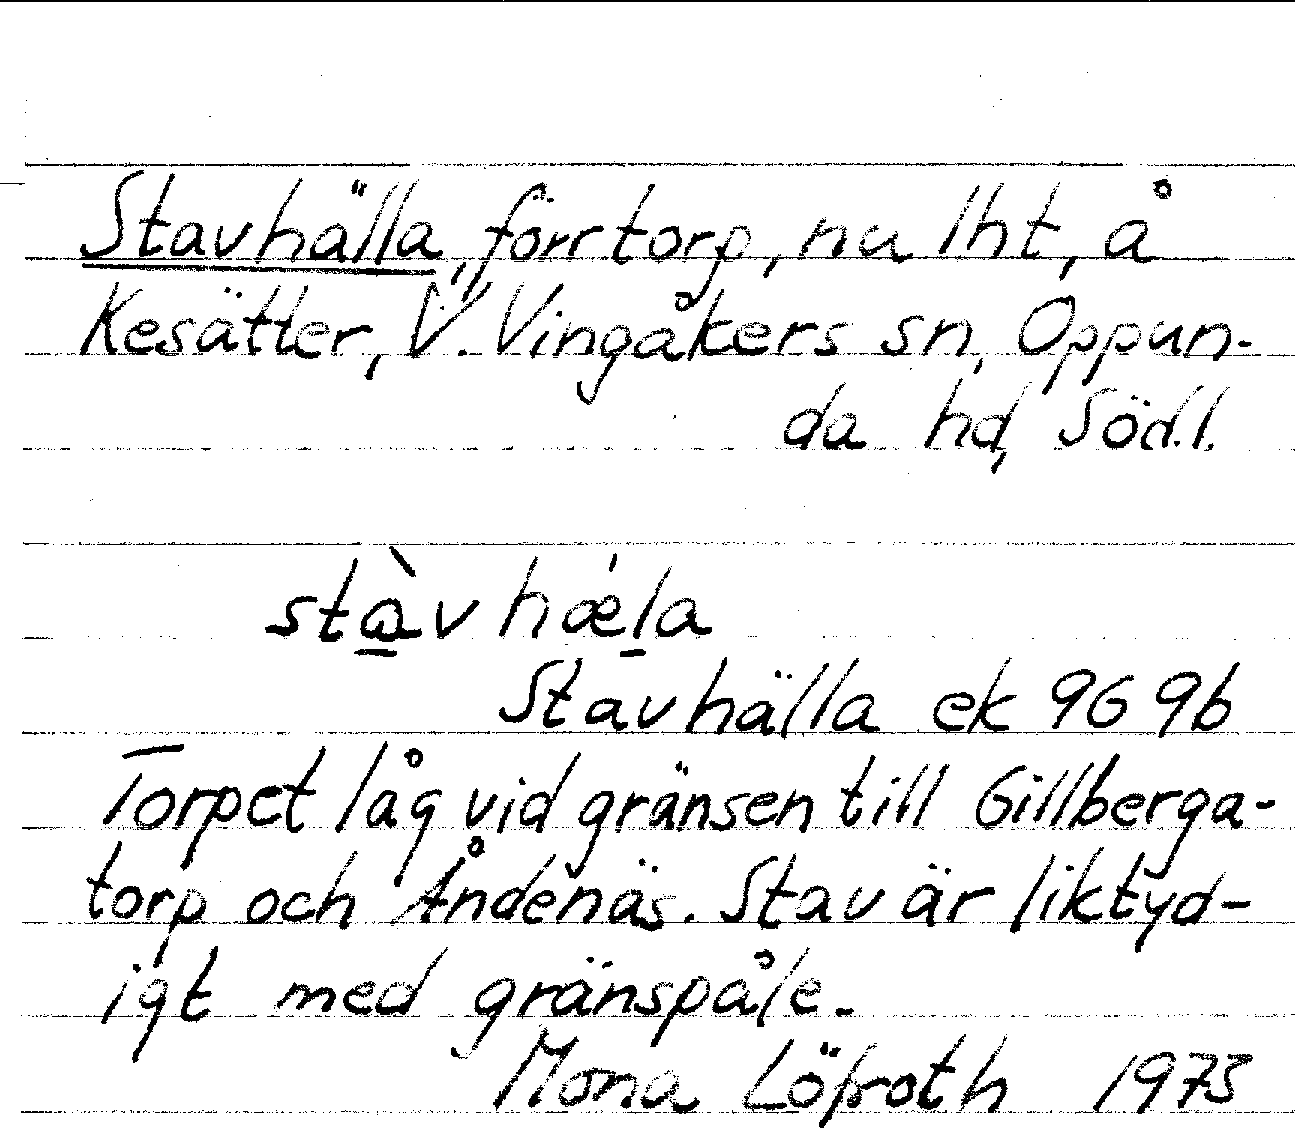 Stavhälla, förr torp, nu lht, å
Kesätter, V. Vingåkers sn, Oppun-
da hd, Södl.
stàvhæ̀la
Stavhälla ek 9G 9b
Torpet låg vid gränsen till Gillberga-
torp och Åndenäs. Stav är liktyd-
igt med gränspåle.
Mona Löfroth 1975